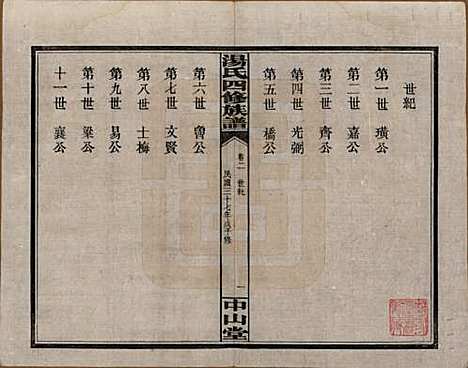 世紀
第一世 璜公
第二世 嘉公
第三世 齊公
第四世 光弼
第五世 橋公
湯氏四修族譜
卷二 世紀
民國三十七年戊子修
一
中山堂
第六世 魯公
第七世 文賢
第八世 士梅
第九世 易公
第十世 梁公
十一世 襄公